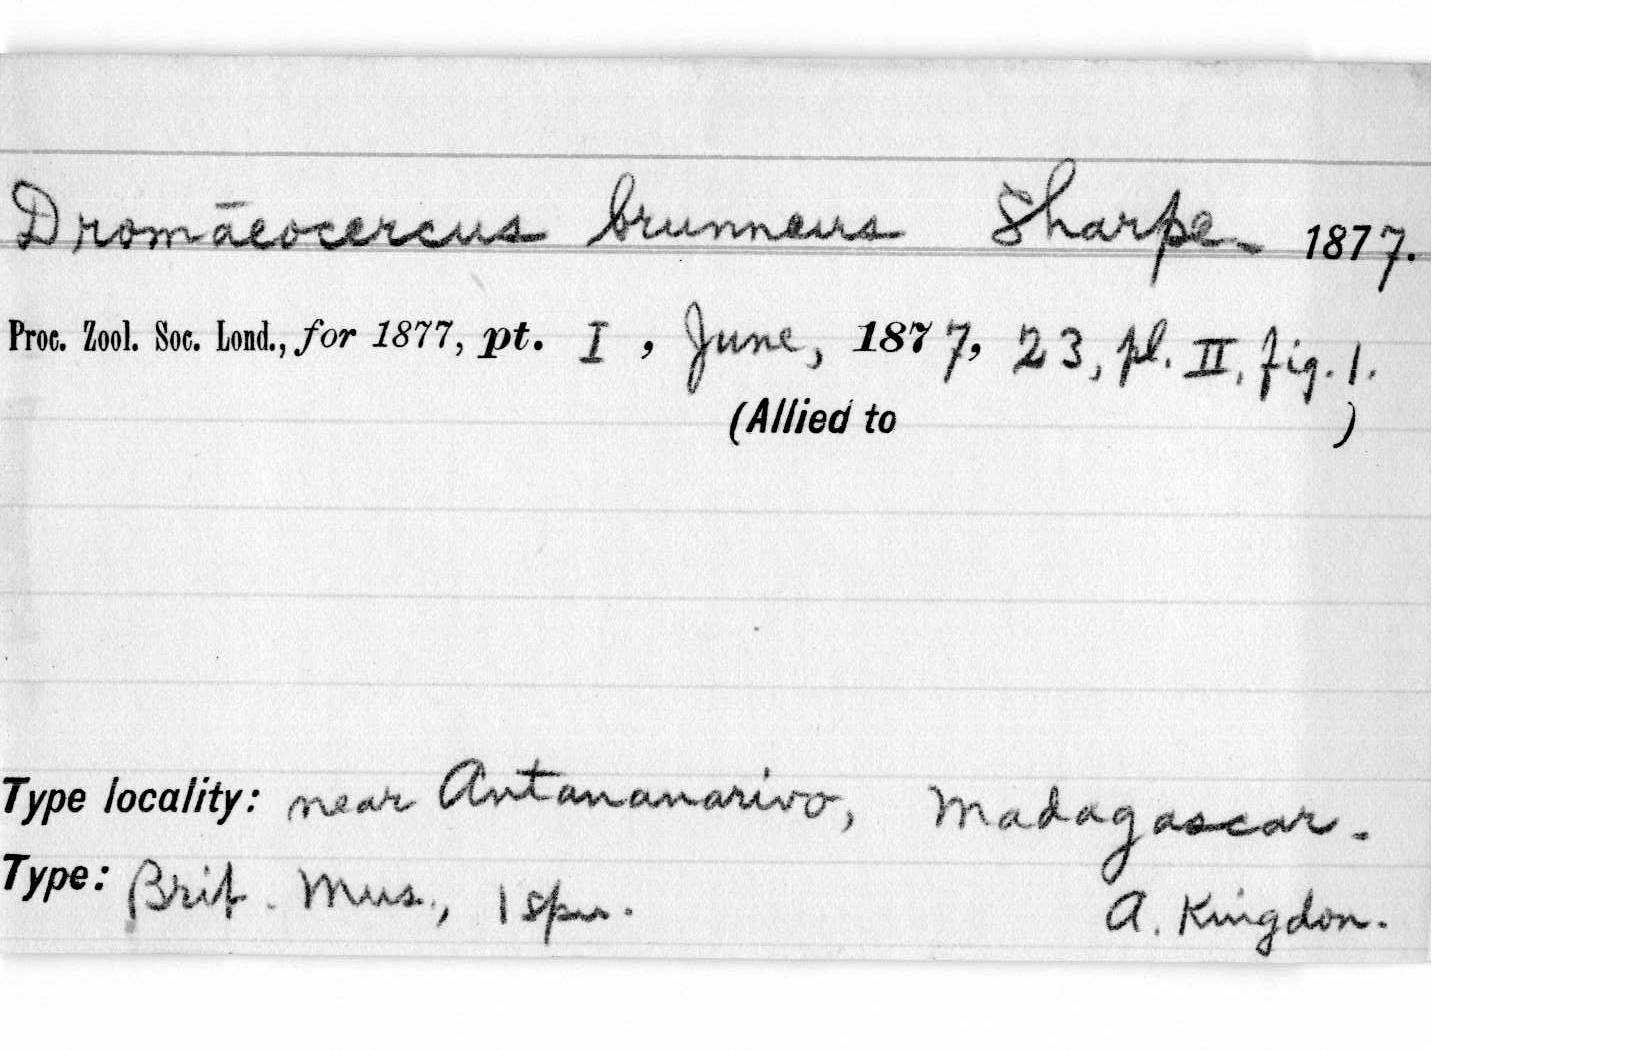 Dromāeocercus brunneus Sharpe. 1877.
Proc. Zool. Soc. Lond., for 1877, pt. I, June, 1877, 23, pl. II, fig. 1.
(Allied to )
Type locality: near Antananarivo, Madagascar.
Type: Brit. Mus., 1 spm. A. Kingdon.